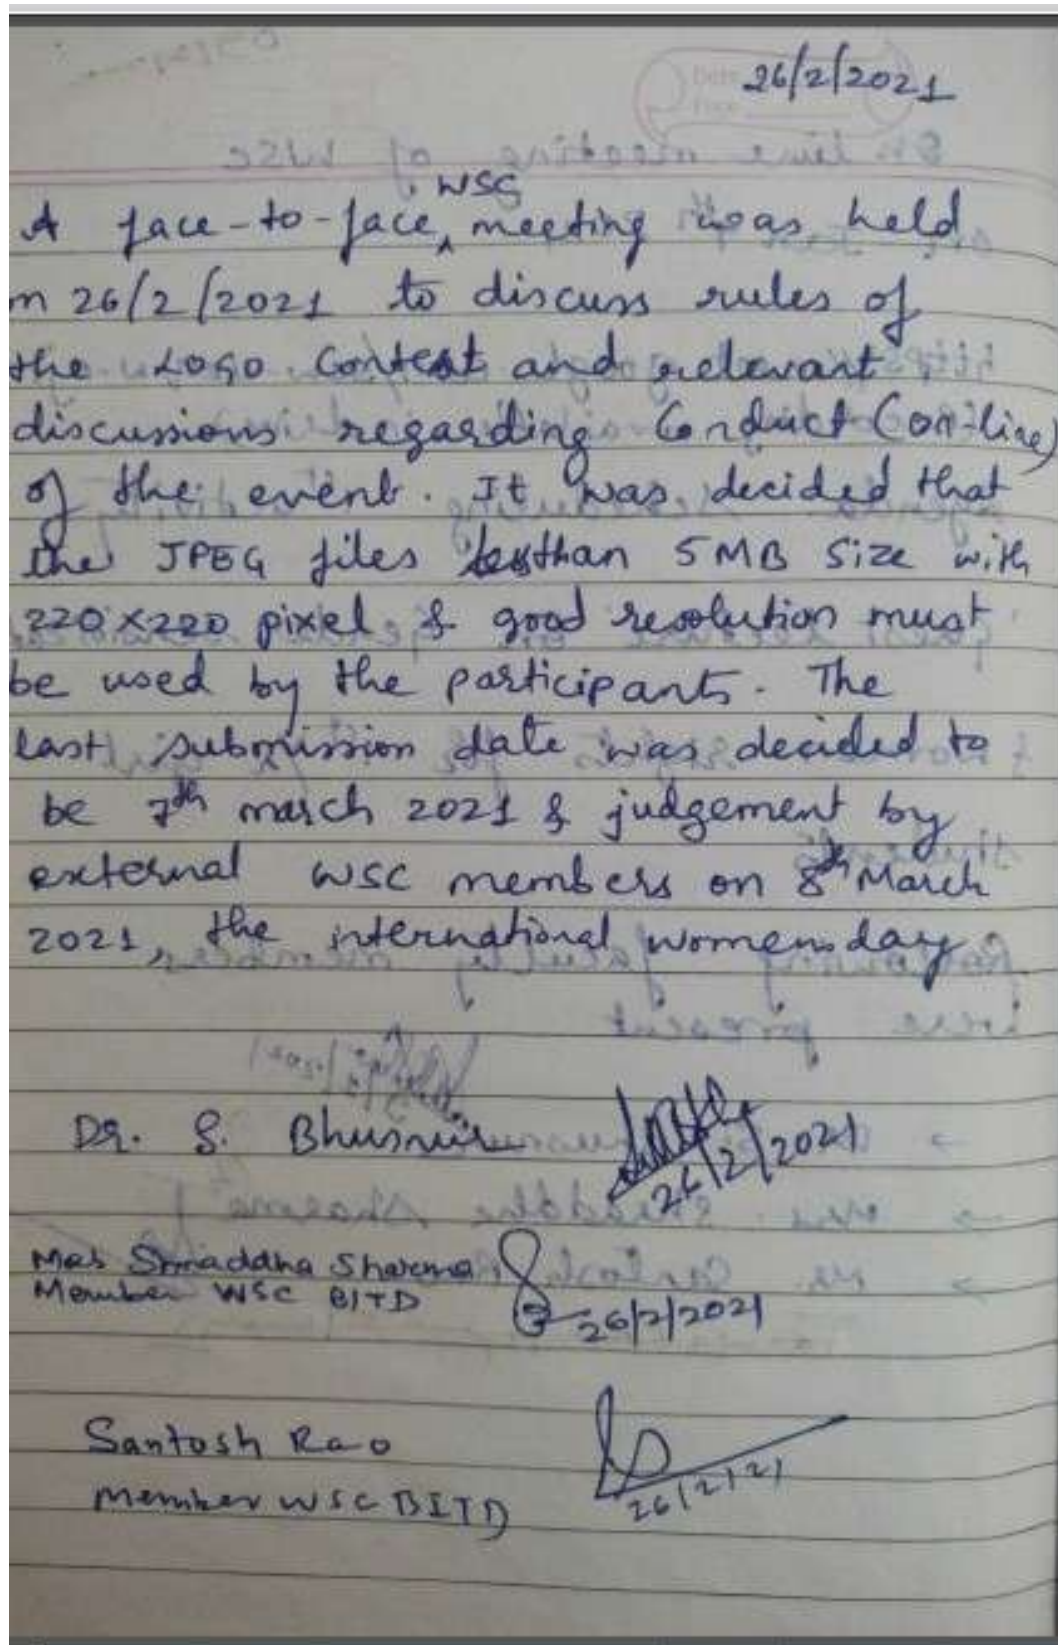 26/2/2021
WSC
A face-to-face meeting was held
on 26/2/2021 to discuss rules of
the LOGO Contest and relevant
discussions regarding Conduct (on-line)
of the event. It was decided that
the JPEG files less than 5 MB Size with
220x220 pixel & good resolution must
be used by the participants. The
last submission date was decided to
be 7th march 2021 & judgement by
external WSC members on 8th March
2021, the international womensday
Dr. S. Bhusnur
26/2/2021
Mrs Shraddha Sharma
Member WSC BITD
26/2/2021
Santosh Rao
member WSC BITD
26/2/21